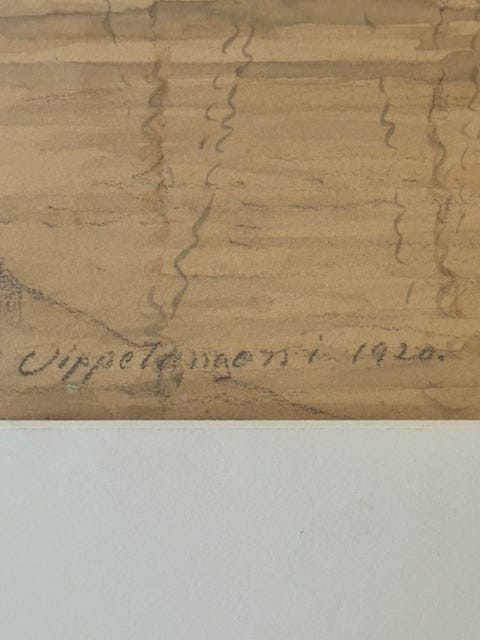 Vippetangen i 1920.